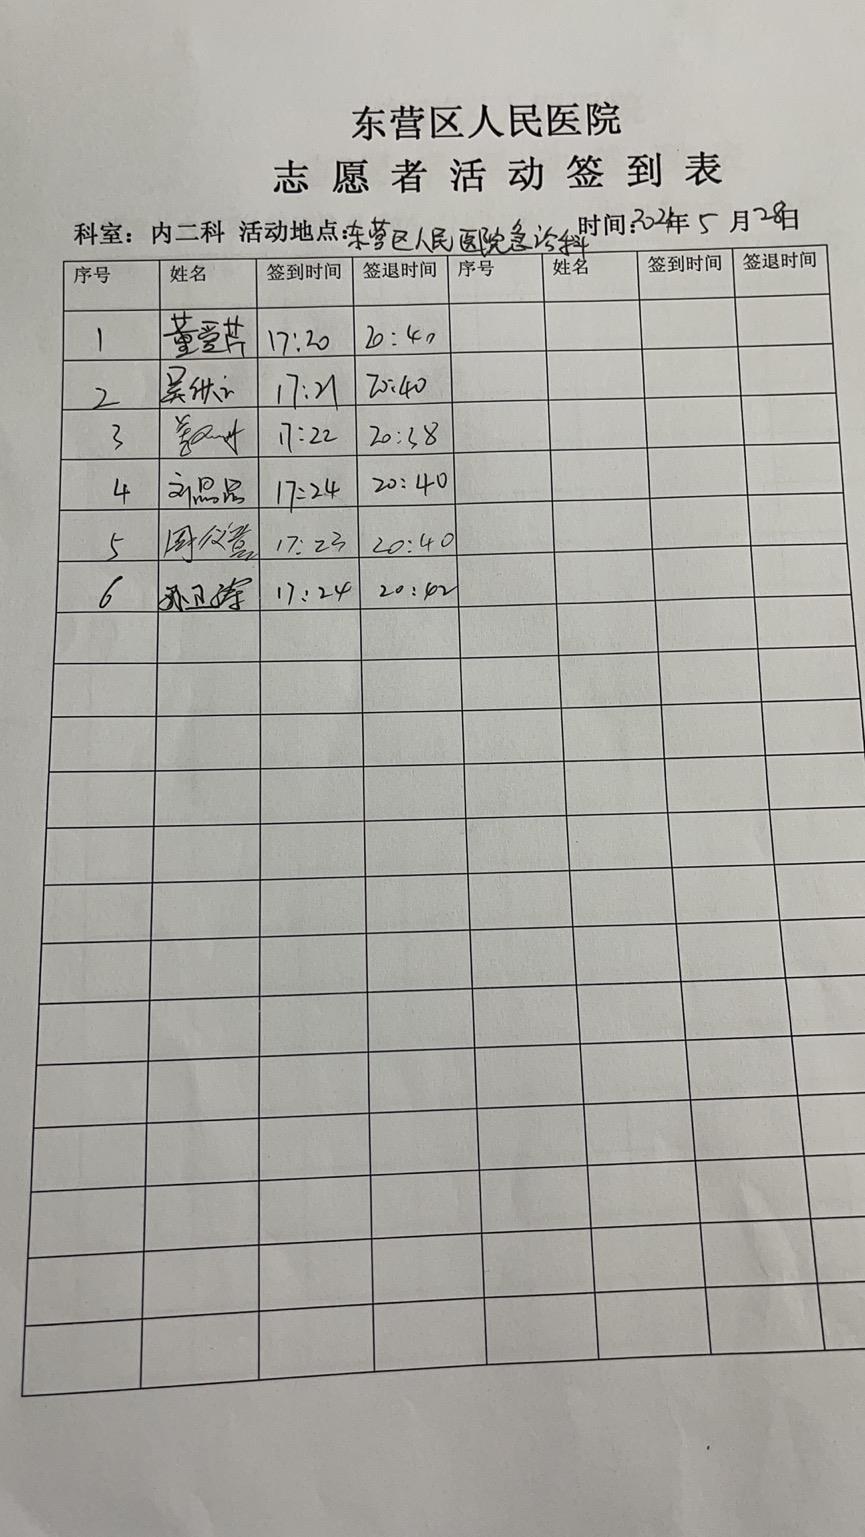 东营区人民医院
志愿者活动签到表
科室：内二科 活动地点：东营区人民医院急诊科 时间：2024年5月28日
序号 姓名 签到时间 签退时间 序号 姓名 签到时间 签退时间
1 董爱芹 17:20 20:40
2 吴 17:21 20:40
3 17:22 20:38
4 刘晶晶 17:24 20:40
5 周 17:23 20:40
6 17:24 20:42